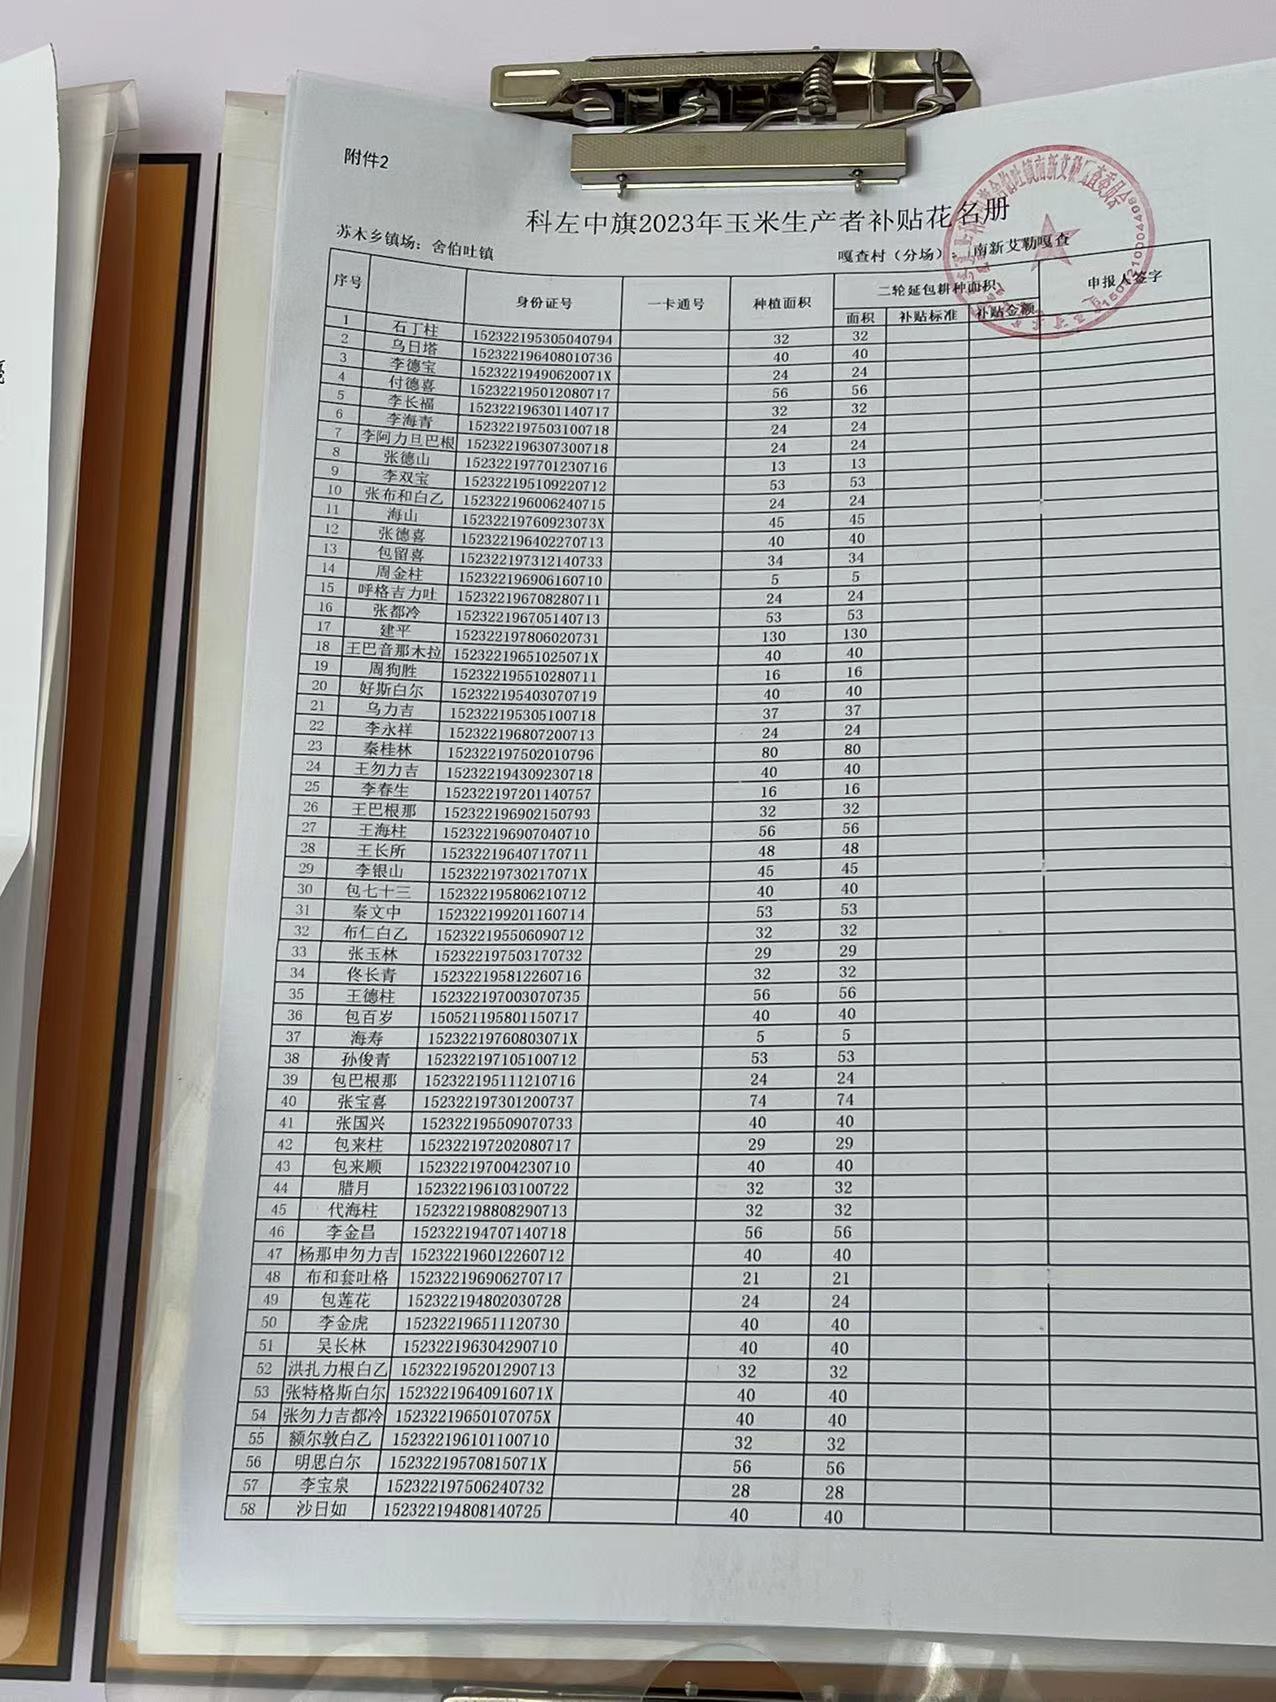 附件2
科左中旗2023年玉米生产者补贴花名册
苏木乡镇场：舍伯吐镇 嘎查村（分场）：南新艾勒嘎查
序号 身份证号 一卡通号 种植面积 二轮延包耕种面积 申报人签字
面积 补贴标准 补贴金额
1 石丁柱 152322195305040794 32 32
2 乌日塔 152322196408010736 40 40
3 李德宝 15232219490620071X 24 24
4 付德喜 152322195012080717 56 56
5 李长福 152322196301140717 32 32
6 李海青 152322197503100718 24 24
7 李阿力旦巴根 152322196307300718 24 24
8 张德山 152322197701230716 13 13
9 李双宝 152322195109220712 53 53
10 张布和白乙 152322196006240715 24 24
11 海山 15232219760923073X 45 45
12 张德喜 152322196402270713 40 40
13 包留喜 152322197312140733 34 34
14 周金柱 152322196906160710 5 5
15 呼格吉力吐 152322196708280711 24 24
16 张都冷 152322196705140713 53 53
17 建平 152322197806020731 130 130
18 王巴音那木拉 15232219651025071X 40 40
19 周狗胜 152322195510280711 16 16
20 好斯白尔 152322195403070719 40 40
21 乌力吉 152322195305100718 37 37
22 李永祥 152322196807200713 24 24
23 秦桂林 152322197502010796 80 80
24 王勿力吉 152322194309230718 40 40
25 李春生 152322197201140757 16 16
26 王巴根那 152322196902150793 32 32
27 王海柱 152322196907040710 56 56
28 王长所 152322196407170711 48 48
29 李银山 15232219730217071X 45 45
30 包七十三 152322195806210712 40 40
31 秦文中 152322199201160714 53 53
32 布仁白乙 152322195506090712 32 32
33 张玉林 152322197503170732 29 29
34 佟长青 152322195812260716 32 32
35 王德柱 152322197003070735 56 56
36 包百岁 150521195801150717 40 40
37 海寿 15232219760803071X 5 5
38 孙俊青 152322197105100712 53 53
39 包巴根那 152322195111210716 24 24
40 张宝喜 152322197301200737 74 74
41 张国兴 152322195509070733 40 40
42 包来柱 152322197202080717 29 29
43 包来顺 152322197004230710 40 40
44 腊月 152322196103100722 32 32
45 代海柱 152322198808290713 32 32
46 李金昌 152322194707140718 56 56
47 杨那申勿力吉 152322196012260712 40 40
48 布和套吐格 152322196906270717 21 21
49 包莲花 152322194802030728 24 24
50 李金虎 152322196511120730 40 40
51 吴长林 152322196304290710 40 40
52 洪扎力根白乙 152322195201290713 32 32
53 张特格斯白尔 15232219640916071X 40 40
54 张勿力吉都冷 15232219650107075X 40 40
55 额尔敦白乙 152322196101100710 32 32
56 明思白尔 15232219570815071X 56 56
57 李宝泉 152322197506240732 28 28
58 沙日如 152322194808140725 40 40